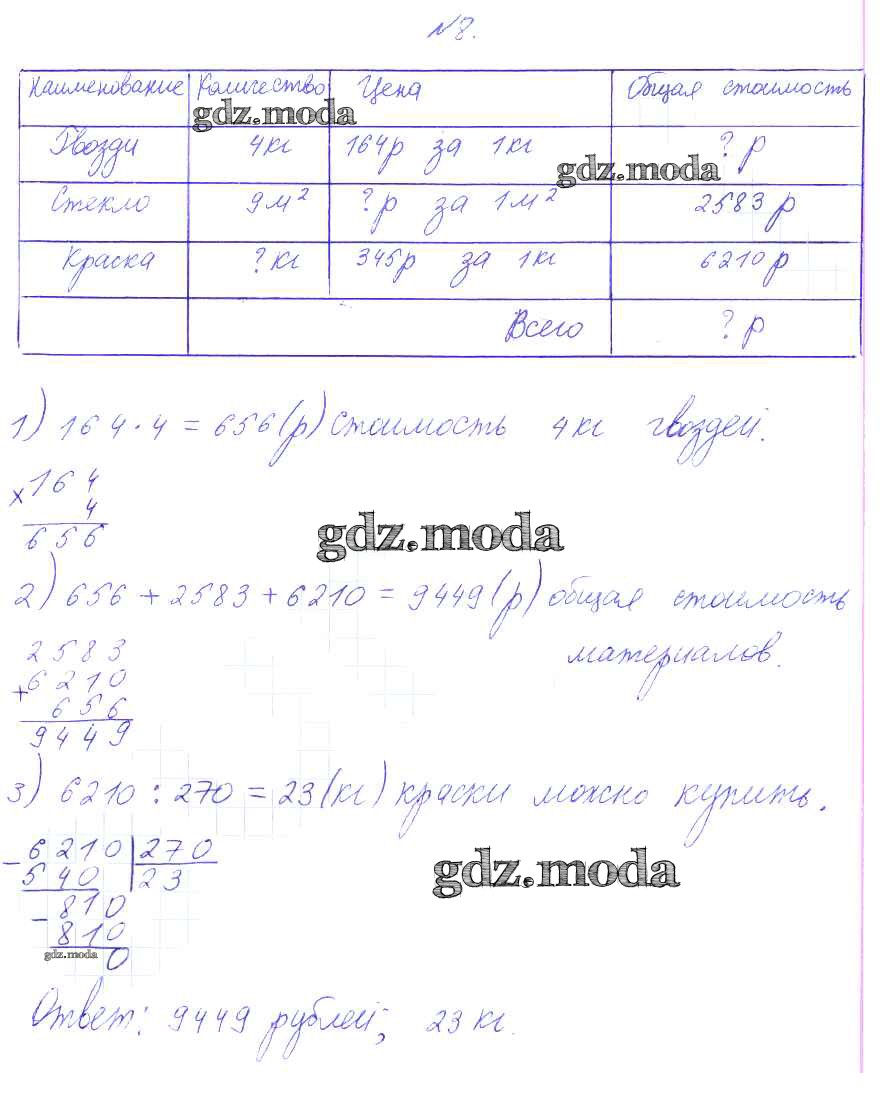 №8.
Наименование Количество Цена Общая стоимость
gdz.moda
Гвозди 4кг 164р за 1кг ? р
gdz.moda
Стекло 9м² ?р за 1м² 2583 р
Краска ? кг 345р за 1кг 6210р
Всего ? р
1) 164 · 4 = 656 (р) стоимость 4кг гвоздей.
× 164
4
656
gdz.moda
2) 656 + 2583 + 6210 = 9449 (р) общая стоимость
материалов.
2583
+ 6210
656
9449
3) 6210 : 270 = 23 (кг) краски можно купить.
- 6210 270
540 23
- 810
810
0
gdz.moda
gdz.moda
Ответ: 9449 рублей; 23 кг.